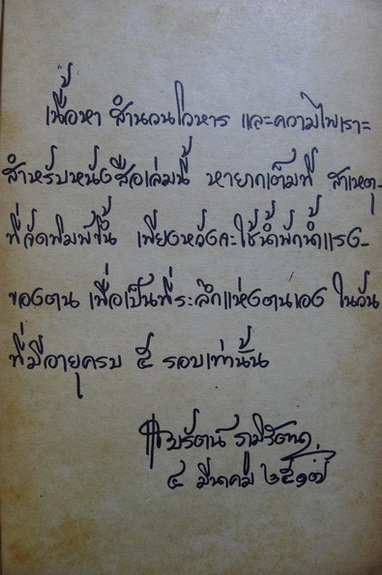 เนื้อหา สำนวนโวหาร และความไพเราะ
สำหรับหนังสือเล่มนี้ หายากเต็มที สาเหตุ-
ที่จัดพิมพ์ขึ้น เพียงหวังจะใช้น้ำพักน้ำแรง-
ของตน เพื่อเป็นที่ระลึกแห่งตนเอง ในวัน
ที่มีอายุครบ ๕ รอบเท่านั้น
๔ มีนาคม ๒๕๑๗